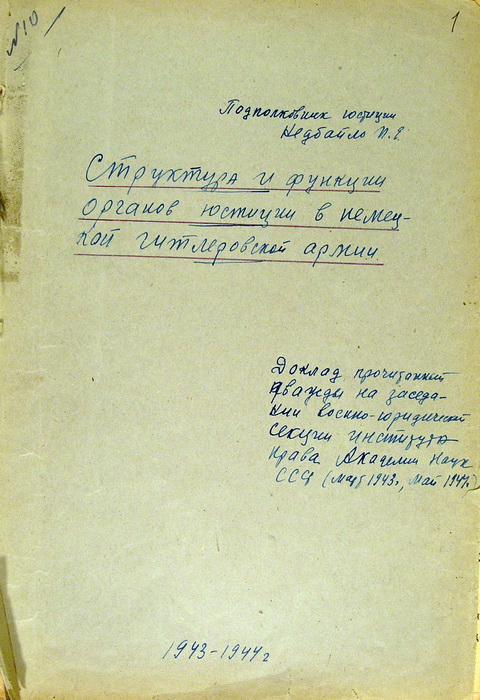 №10
1
Подполковник юстиции
Недбайло П.Е.
Структура и функции
органов юстиции в немец-
кой гитлеровской армии
Доклад прочитанный
дважды на заседа-
нии военно-юридической
секции института
права Академии Наук
СССР (март 1943г., май 1944г.)
1943-1944г